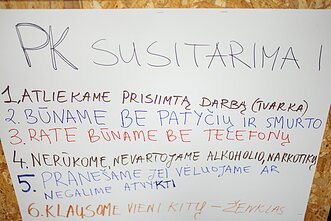 PK SUSITARIMAI
1. ATLIEKAME PRISIIMTĄ DARBĄ (TVARKA)
2. BŪNAME BE PATYČIŲ IR SMURTO
3. RATE BŪNAME BE TELEFONŲ
4. NERŪKOME, NEVARTOJAME ALKOHOLIO, NARKOTIKŲ
5. PRANEŠAME JEI VĖLUOJAME AR
NEGALIME ATVYKTI
6. KLAUSOME VIENI KITŲ – ŽENKLAS